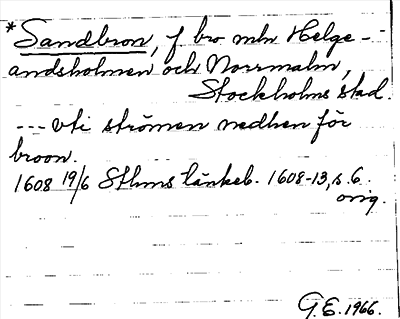 *Sandbron, f bro mln Helge-
andsholmen och Norrmalm,
Stockholms stad.
--- vti strömen nedhen för
broon.
1608 19/6 Sthms tänkeb. 1608-13, s. 6.
orig.
G.E. 1966.